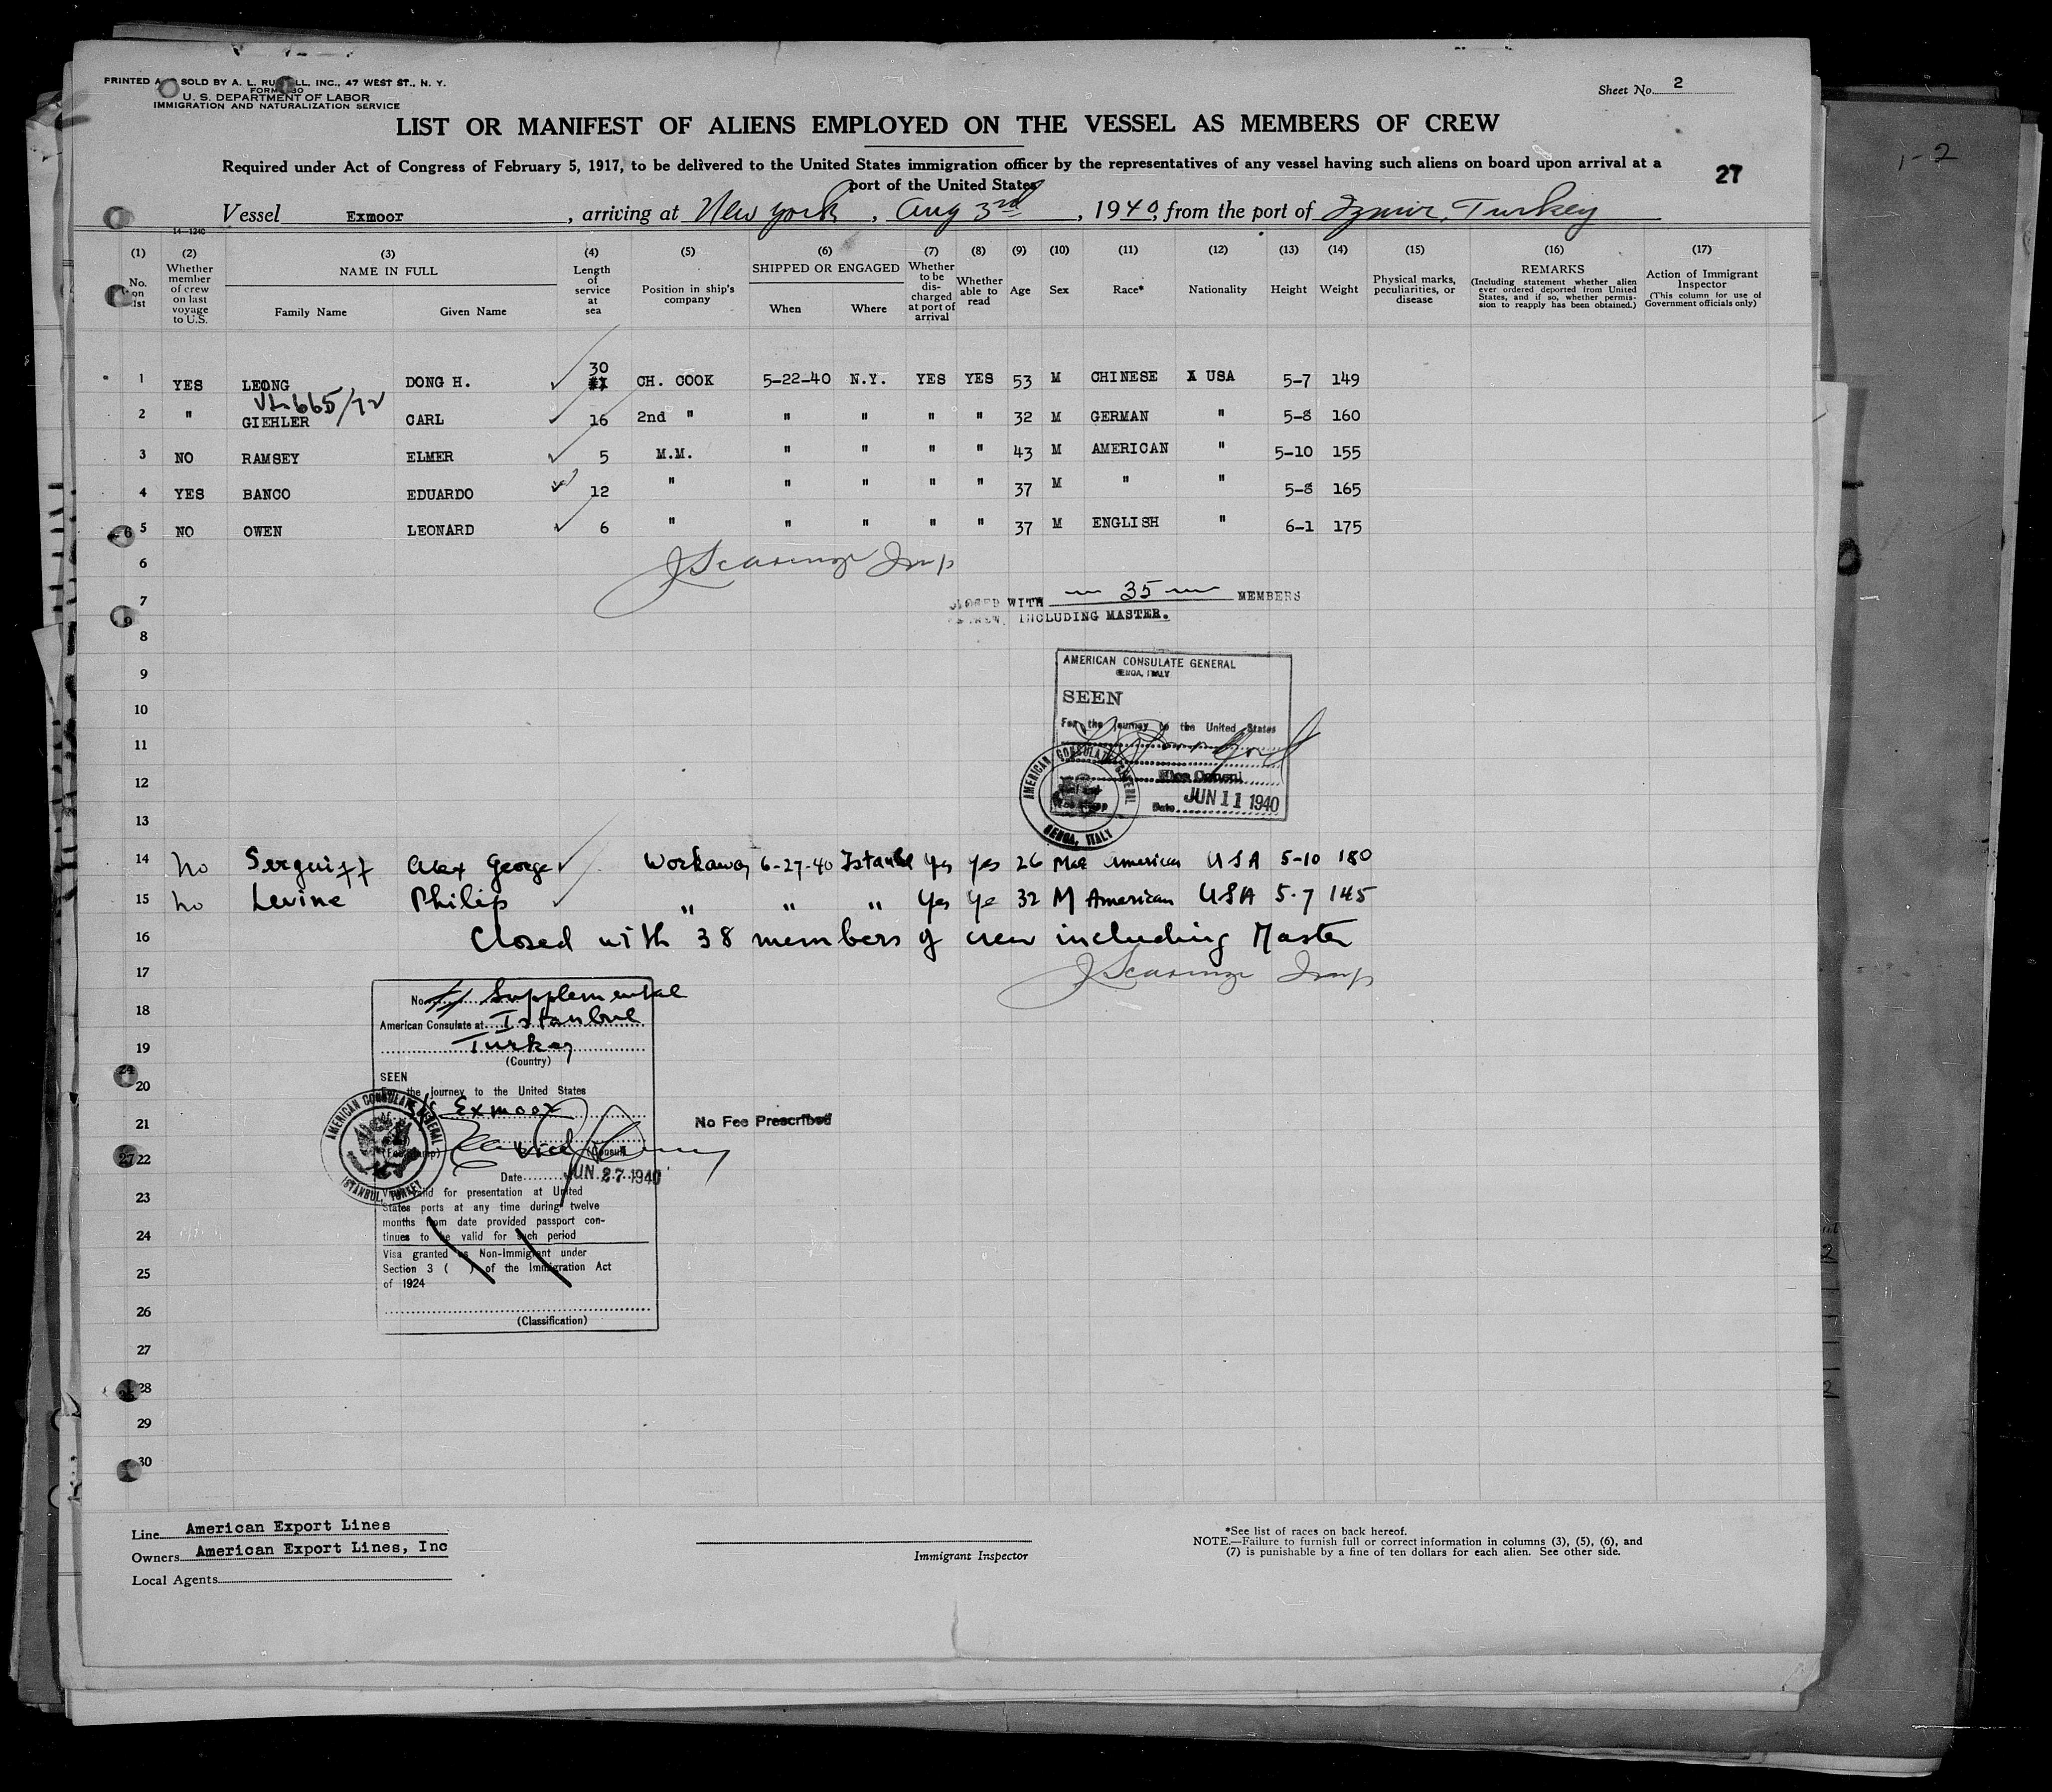 PRINTED A SOLD BY A. L. RU LL, INC., 47 WEST ST., N. Y.
FORM 30
U. S. DEPARTMENT OF LABOR
IMMIGRATION AND NATURALIZATION SERVICE
Sheet No. 2
LIST OR MANIFEST OF ALIENS EMPLOYED ON THE VESSEL AS MEMBERS OF CREW
Required under Act of Congress of February 5, 1917, to be delivered to the United States immigration officer by the representatives of any vessel having such aliens on board upon arrival at a
port of the United States
27
1-2
Vessel Exmoor, arriving at New York, Aug 3rd, 1940, from the port of Izmir, Turkey
14-1240
(1) (2) (3) (4) (5) (6) (7) (8) (9) (10) (11) (12) (13) (14) (15) (16) (17)
No. on list
Whether member of crew on last voyage to U.S.
NAME IN FULL
Family Name Given Name
Length of service at sea
Position in ship's company
SHIPPED OR ENGAGED
When Where
Whether to be discharged at port of arrival
Whether able to read
Age Sex Race* Nationality Height Weight
Physical marks, peculiarities, or disease
REMARKS
(Including statement whether alien ever ordered deported from United States, and if so, whether permission to reapply has been obtained.)
Action of Immigrant Inspector
(This column for use of Government officials only)
1 YES LEONG DONG H. 30 CH. COOK 5-22-40 N.Y. YES YES 53 M CHINESE X USA 5-7 149
2 " GIEHLER CARL 16 2nd " " " " " 32 M GERMAN " 5-8 160
3 NO RAMSEY ELMER 5 M.M. " " " " 43 M AMERICAN " 5-10 155
4 YES BANCO EDUARDO 12 " " " " " 37 M " " 5-8 165
5 NO OWEN LEONARD 6 " " " " " 37 M ENGLISH " 6-1 175
6
7 CLOSED WITH 35 MEMBERS
CREW, INCLUDING MASTER.
8
AMERICAN CONSULATE GENERAL
GENOA, ITALY
9
SEEN
10
For the journey to the United States
11
Vice Consul
12
Date JUN 11 1940
AMERICAN CONSULATE GENERAL
GENOA, ITALY
13
14 no Serguieff Alex George Workaway 6-27-40 Istanbul Yes Yes 26 Male American USA 5-10 180
15 no Levine Philip " " " Yes Ye 32 M American USA 5-7 145
16 Closed with 38 members of crew including Master
17
No. Supplemental
18
American Consulate at Istanbul
19
Turkey
(Country)
SEEN
20
For the journey to the United States
S/S Exmoor
21
No Fee Prescribed
22
Vice (Consul)
(Fee Stamp)
Date JUN 27 1940
AMERICAN CONSULATE GENERAL
ISTANBUL, TURKEY
23
Visa valid for presentation at United
States ports at any time during twelve
months from date provided passport con-
24
tinues to be valid for such period
Visa granted as Non-Immigrant under
25
Section 3 ( ) of the Immigration Act
of 1924
26
(Classification)
27
28
29
30
Line American Export Lines
Owners American Export Lines, Inc
Local Agents
Immigrant Inspector
*See list of races on back hereof.
NOTE.—Failure to furnish full or correct information in columns (3), (5), (6), and
(7) is punishable by a fine of ten dollars for each alien. See other side.